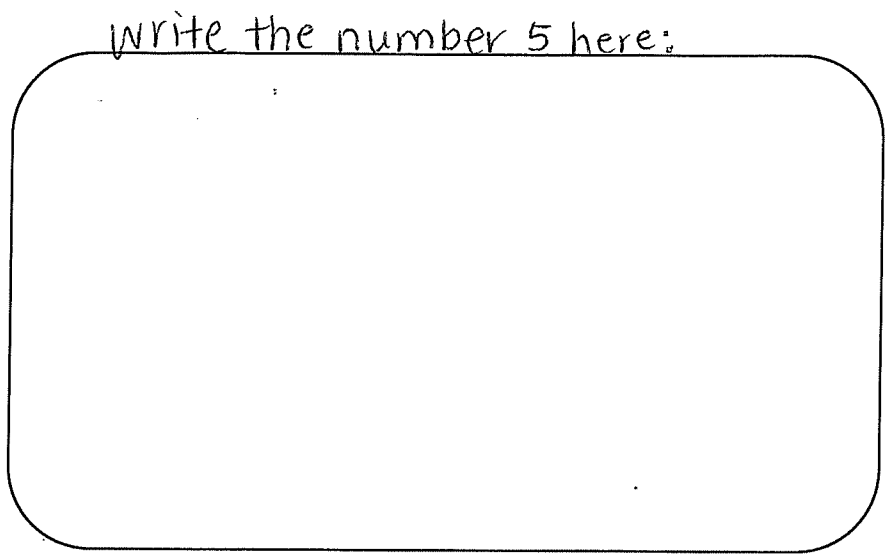 Write the number 5 here: